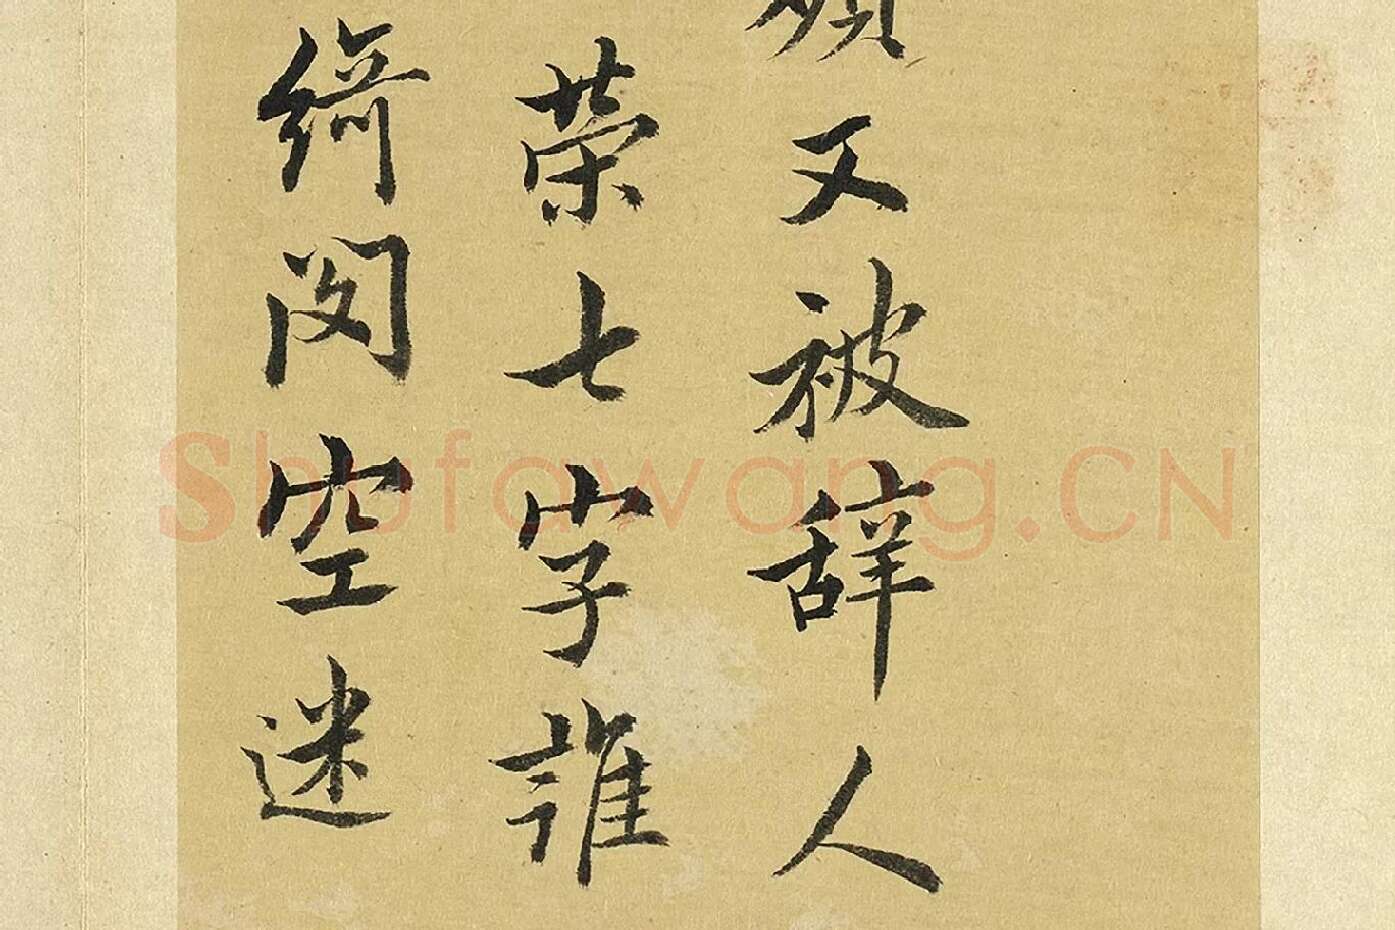 又被辞人
荣七字誰
綺閔空迷
Shufawang.CN